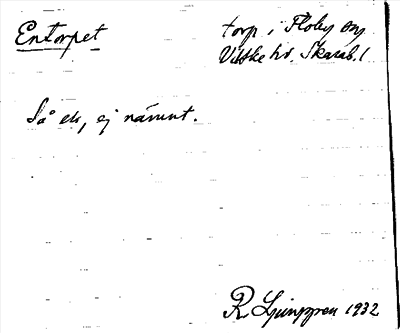 Entorpet
torp i Floby sn
Vilske hd. Skarab. l
Så ek, ej nämnt.
R. Ljunggren 1932